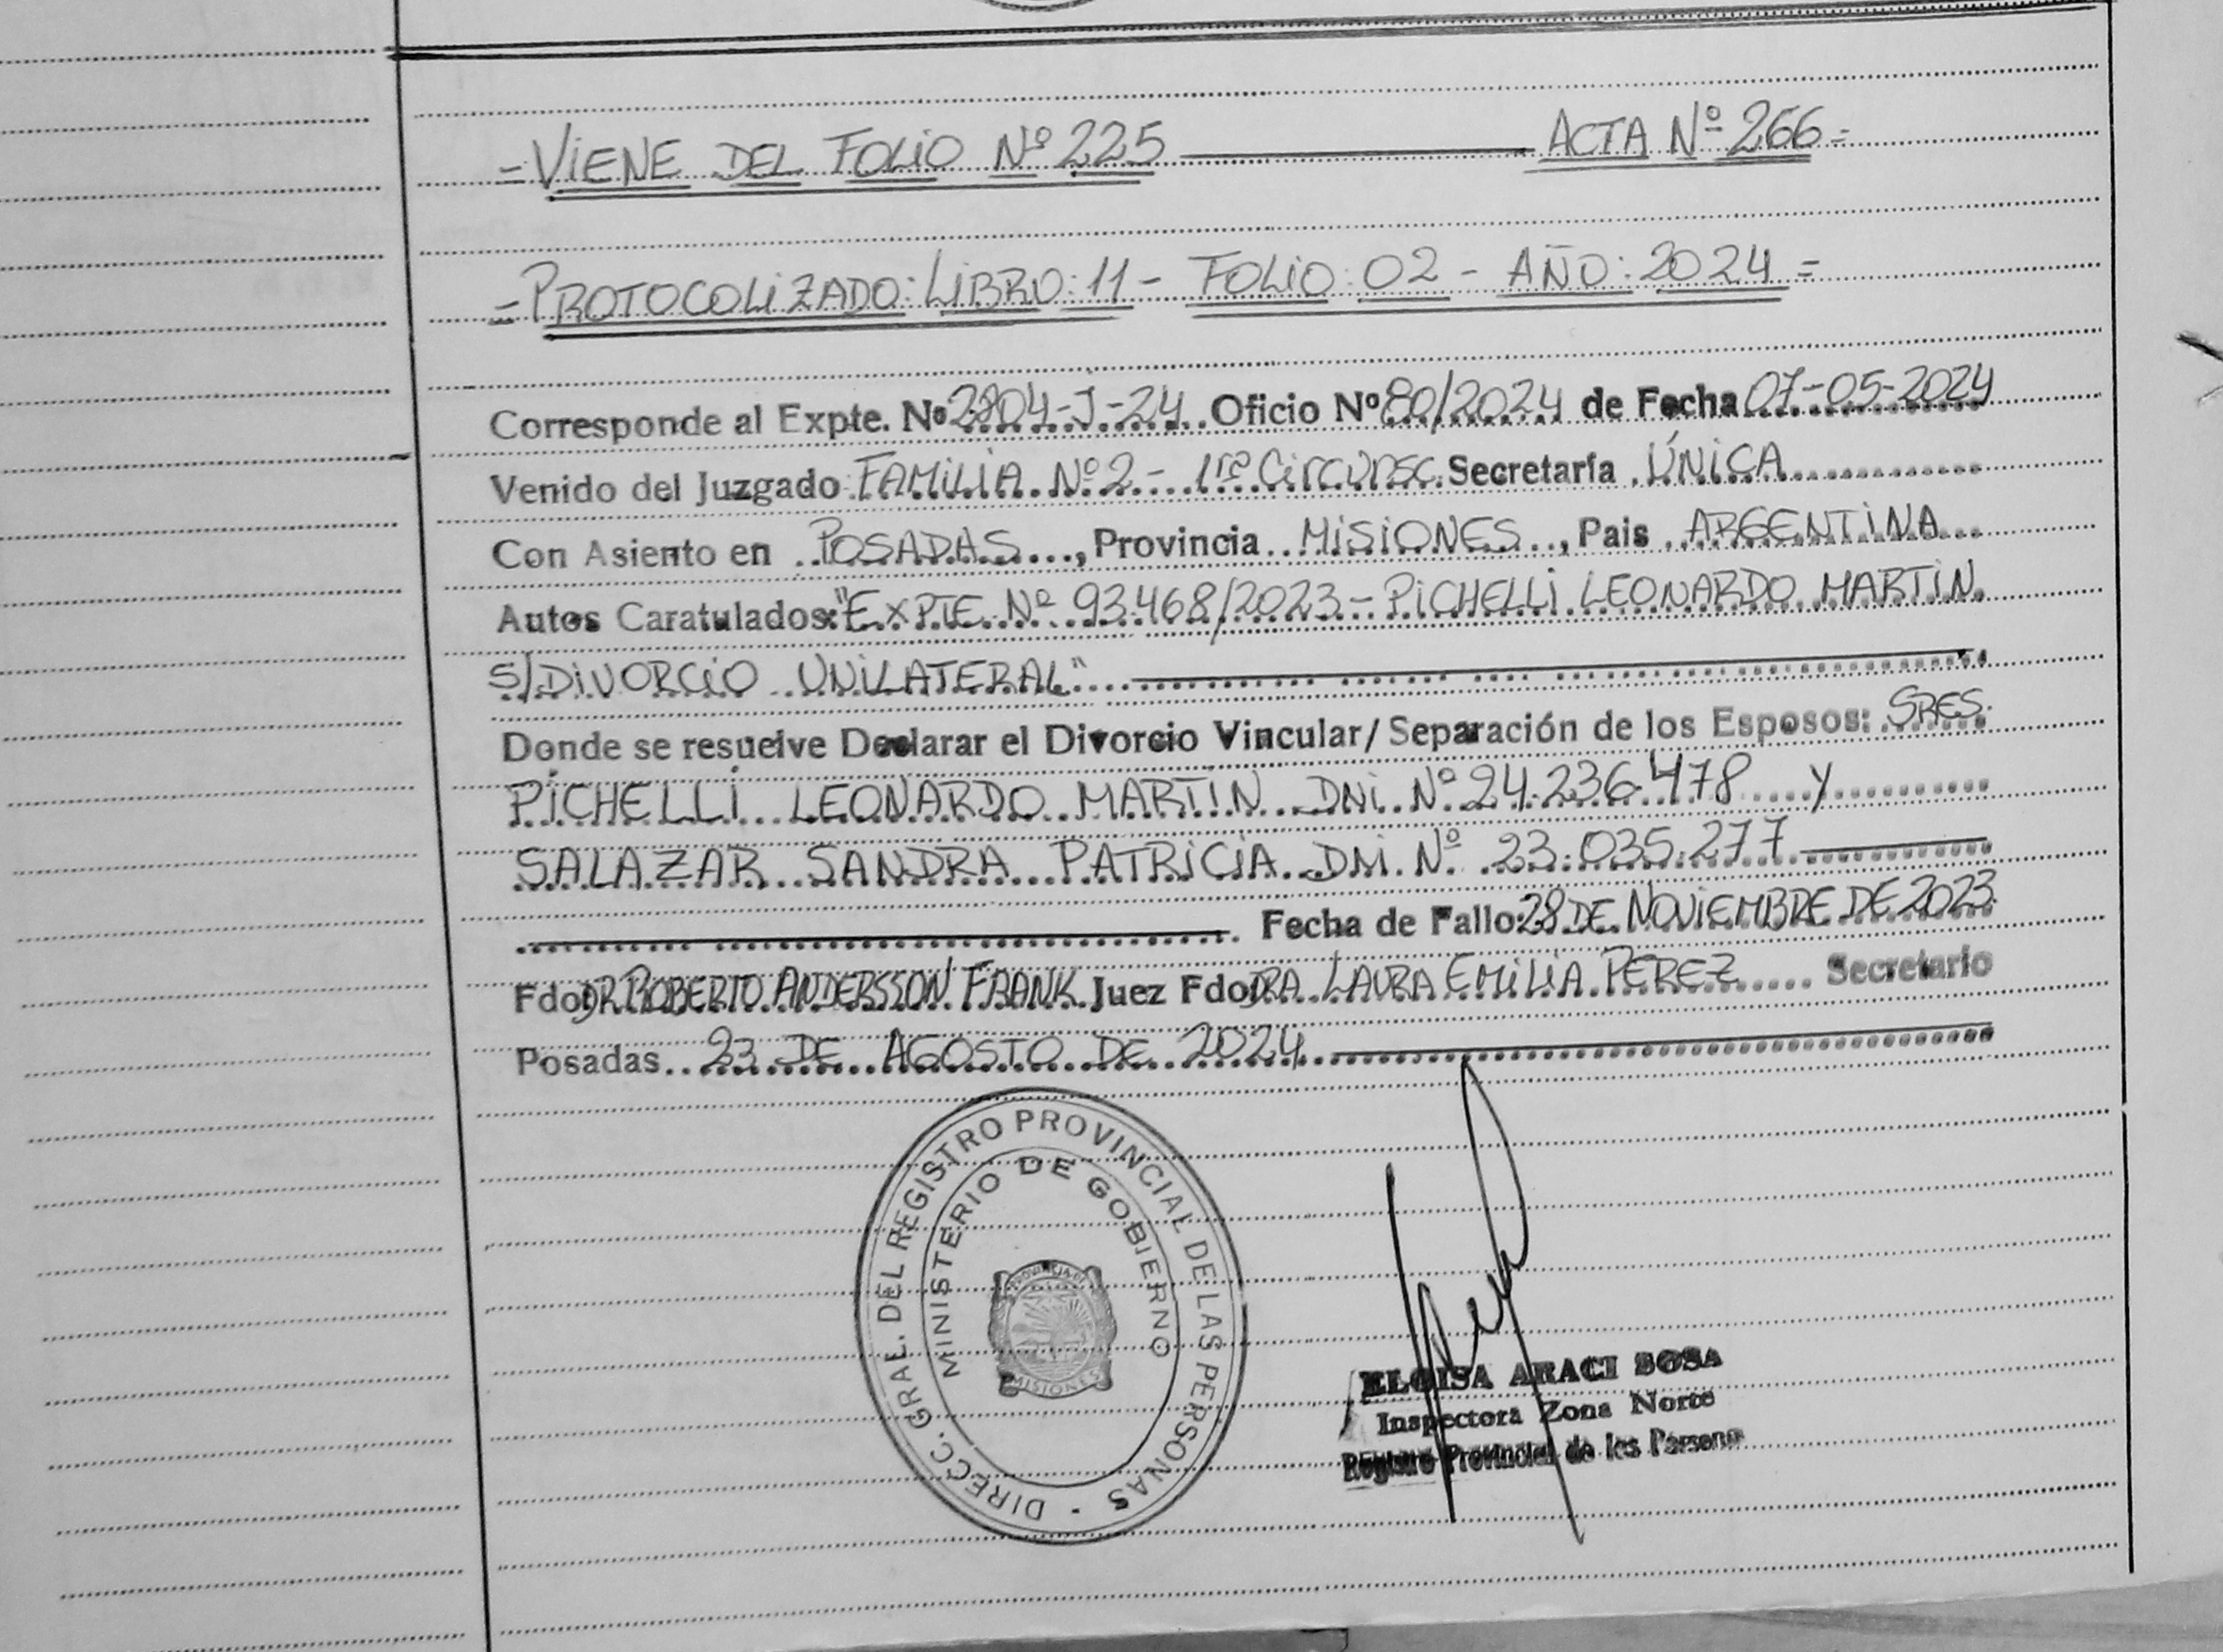 =VIENE DEL FOLIO Nº 225 ——— ACTA Nº 266=
=PROTOCOLIZADO: LIBRO: 11 - FOLIO: 02 - AÑO: 2024=
Corresponde al Expte. Nº 2804-J-24 Oficio Nº 80/2024 de Fecha 07-05-2024
Venido del Juzgado FAMILIA Nº 2 - 1ra Circunsc. Secretaría ÚNICA
Con Asiento en POSADAS, Provincia MISIONES, Pais ARGENTINA
Autos Caratulados: "EXPTE Nº 93.468/2023 - PICHELLI LEONARDO MARTIN
S/DIVORCIO UNILATERAL"
Donde se resuelve Declarar el Divorcio Vincular/Separación de los Esposos: SRES.
PICHELLI LEONARDO MARTIN DNI Nº 24.236.478 y
SALAZAR SANDRA PATRICIA DNI Nº 23.035.277
Fecha de Fallo: 28 DE NOVIEMBRE DE 2023
Fdo: DR ROBERTO ANDERSSON FRANK Juez Fdo: DRA LAURA EMILIA PEREZ Secretario
Posadas 23 DE AGOSTO DE 2024
DIRECC. GRAL. DEL REGISTRO PROVINCIAL DE LAS PERSONAS -
MINISTERIO DE GOBIERNO
PROVINCIA DE
MISIONES
ELOISA ARACI SOSA
Inspectora Zona Norte
Registro Provincial de las Personas